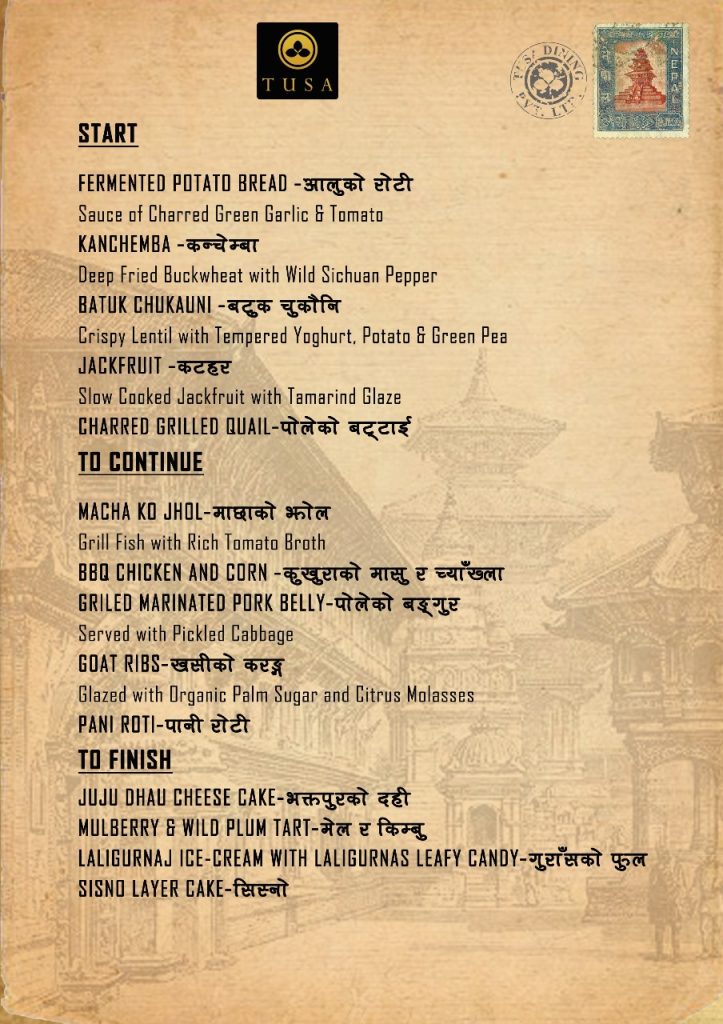 TUSA
TUSA DINING PVT. LTD.
NEPAL
START
FERMENTED POTATO BREAD -आलुको रोटी
Sauce of Charred Green Garlic & Tomato
KANCHEMBA -कन्चेम्बा
Deep Fried Buckwheat with Wild Sichuan Pepper
BATUK CHUKAUNI -बटुक चुकौनि
Crispy Lentil with Tempered Yoghurt, Potato & Green Pea
JACKFRUIT -कटहर
Slow Cooked Jackfruit with Tamarind Glaze
CHARRED GRILLED QUAIL-पोलेको बट्टाई
TO CONTINUE
MACHA KO JHOL-माछाको झोल
Grill Fish with Rich Tomato Broth
BBQ CHICKEN AND CORN -कुखुराको मासु र च्याँख्ला
GRILED MARINATED PORK BELLY-पोलेको बङ्गुर
Served with Pickled Cabbage
GOAT RIBS-खसीको करङ्ग
Glazed with Organic Palm Sugar and Citrus Molasses
PANI ROTI-पानी रोटी
TO FINISH
JUJU DHAU CHEESE CAKE-भक्तपुरको दही
MULBERRY & WILD PLUM TART-मेल र किम्बु
LALIGURNAJ ICE-CREAM WITH LALIGURNAS LEAFY CANDY-गुराँसको फुल
SISNO LAYER CAKE-सिस्नो